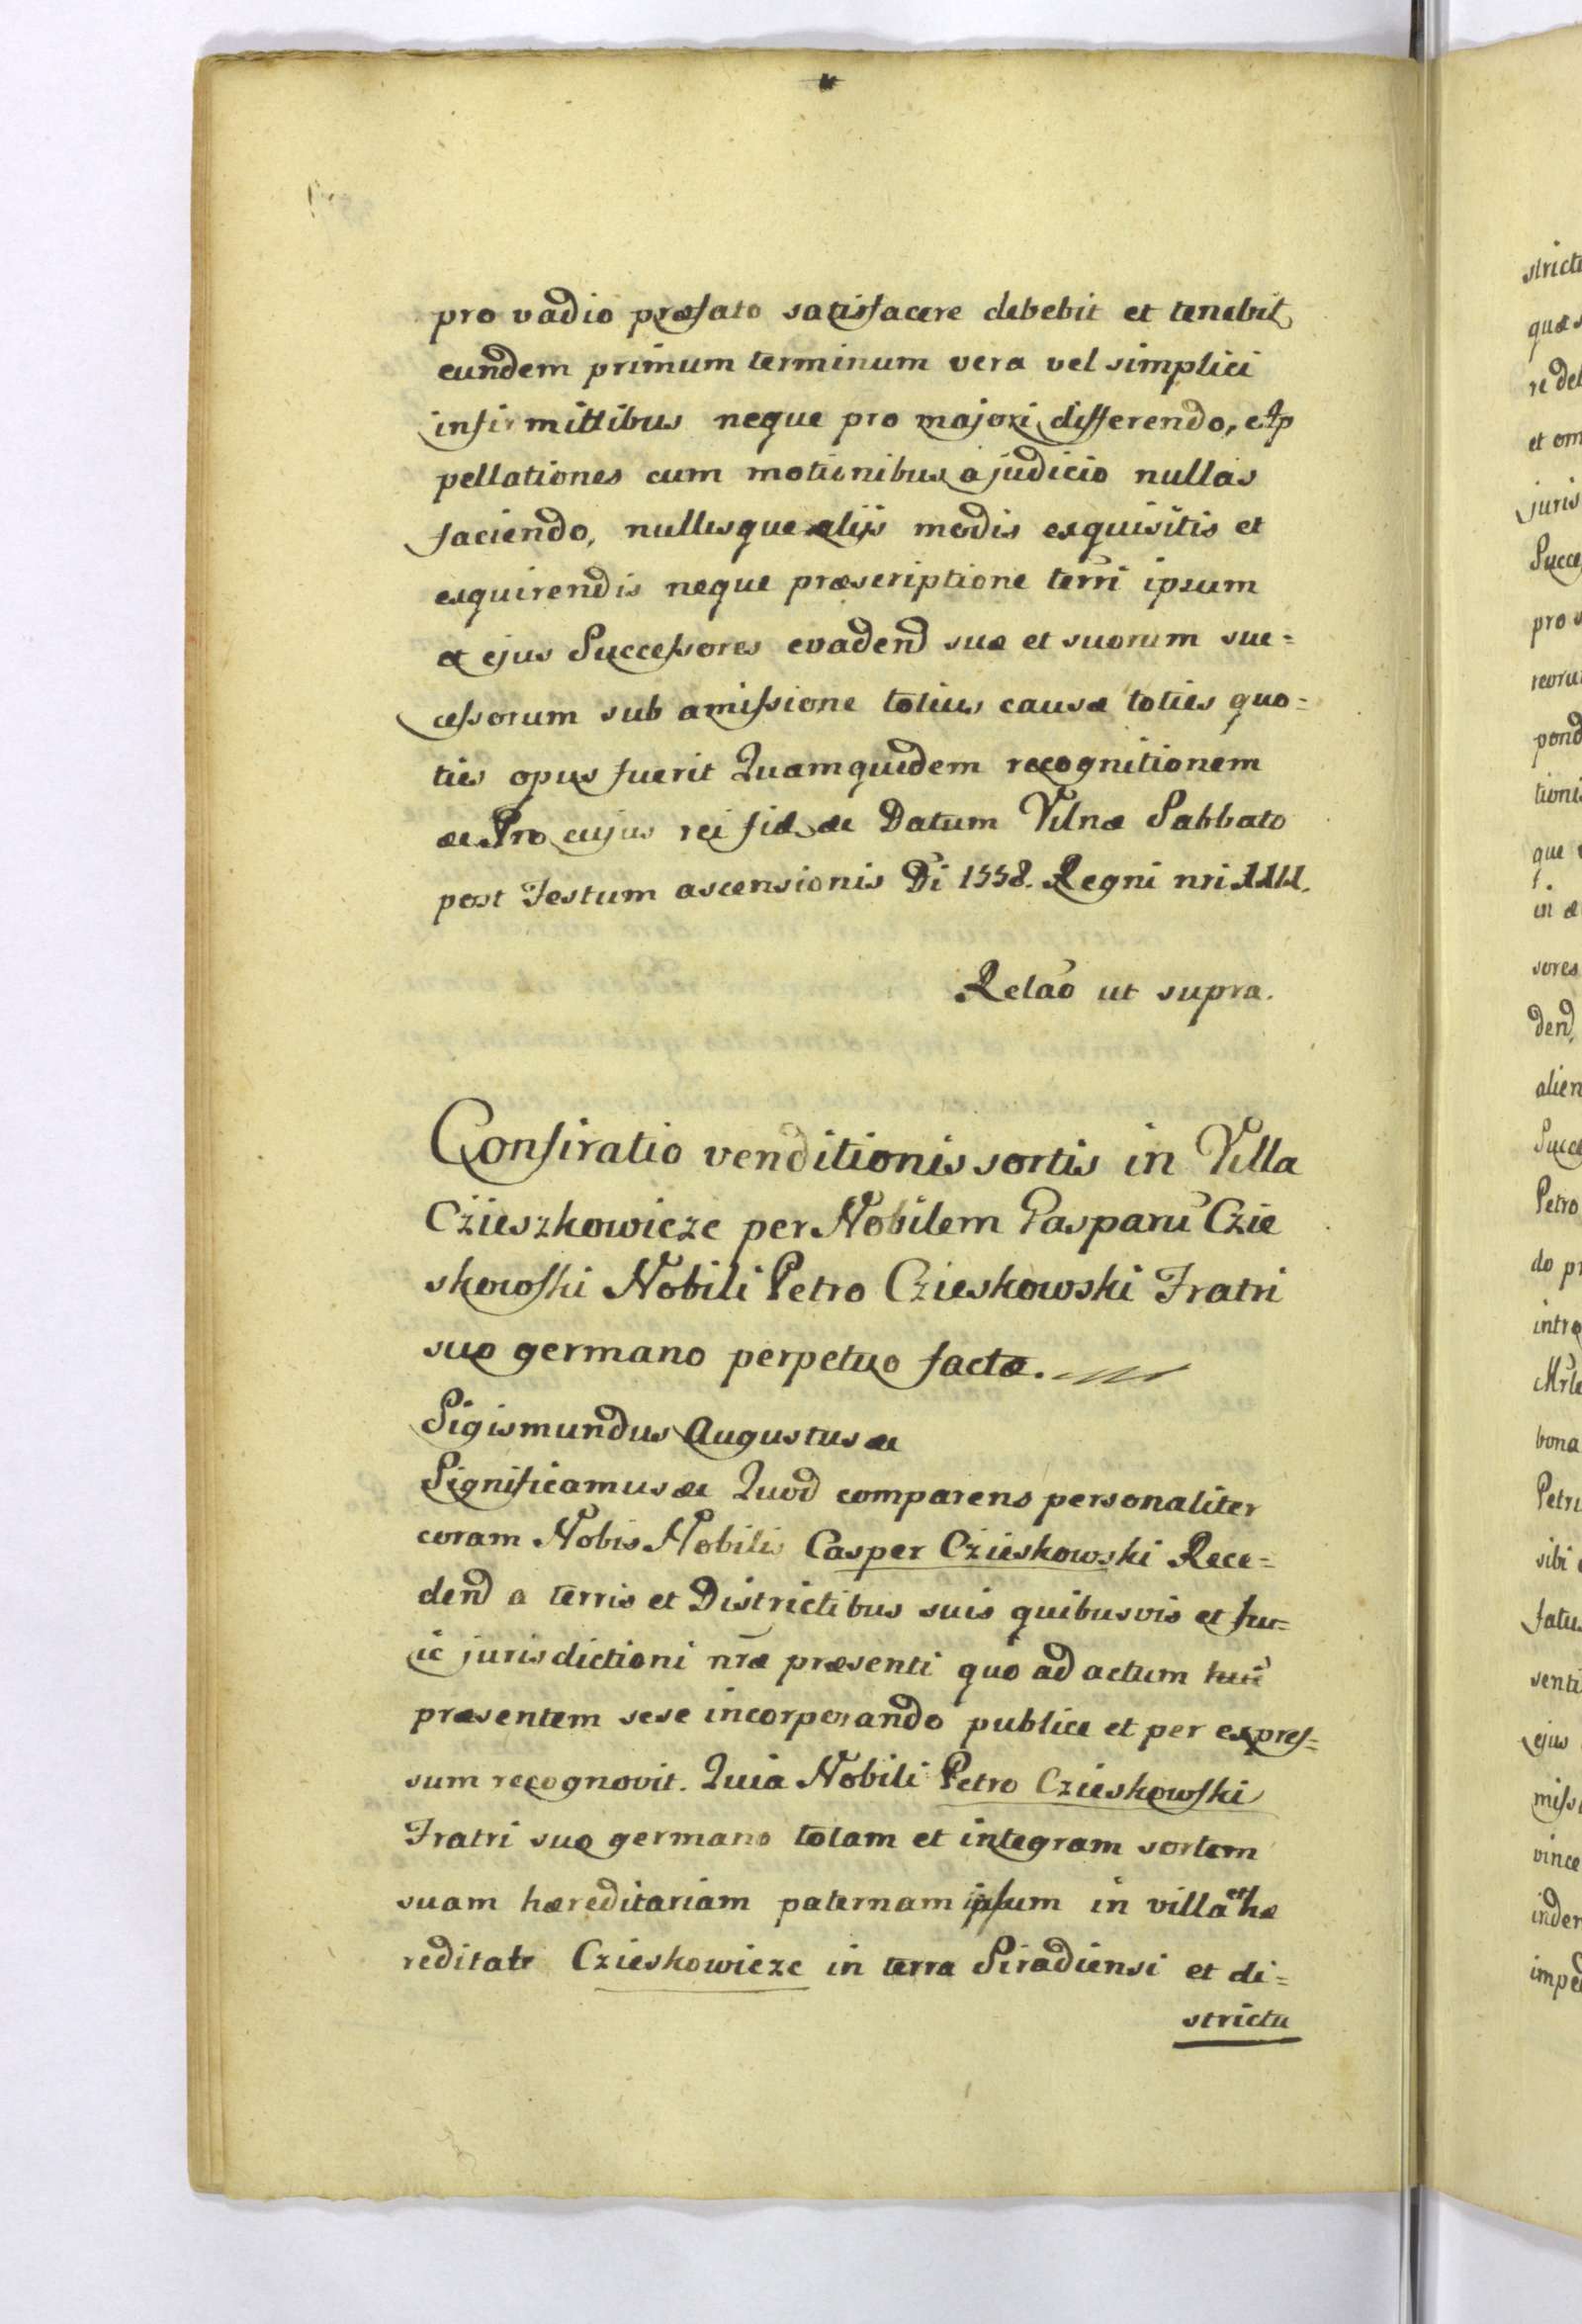 pro vadio præfato satisfacere debebit et tenebit
eundem primum terminum vera vel simplici
infirmittibus neque pro majori differendo, Ap
pellationes cum motionibus a judicio nullas
faciendo, nullisque alijs modis exquisitis et
exquirendis neque præscriptione terri ipsum
et ejus Successores evadend suæ et suorum suc=
cessorum sub amissione totius causæ toties quo=
ties opus fuerit Quamquidem recognitionem
æc Pro cujus rei fid. æc Datum Vilnæ Sabbato
post Festum ascensionis Di 1558. Regni nri
Relao ut supra.
Confiratio venditionis sortis in Villa
Czieszkowicze per Nobilem Gasparu Czie
skowski Nobili Petro Czieskowski Fratri
suo germano perpetuo factæ.
Sigismundus Augustus æc
Significamus æc Quod comparens personaliter
coram Nobis Nobilis Casper Czieskowski Rece=
dend a terris et Districtibus suis quibusvis et hu=
ic jurisdictioni nræ præsenti quo ad actum
præsentem sese incorporando publice et per expres=
sum recognovit. Quia Nobili Petro Czieskowski
Fratri suo germano totam et integram sortem
suam hæreditariam paternam ipsum in villa et hæ
reditate Czieskowicze in terra Siradiensi et di=
strictu
stricti
quæ
re deb
et om
juris
Succe
pro v
reoru
pond
tioni
que
in æ
sores
dend,
alien
Succe
Petro
do pr
intro
bona
Petri
sibi
fatus
senti
ejus
missi
vince
inder
impe